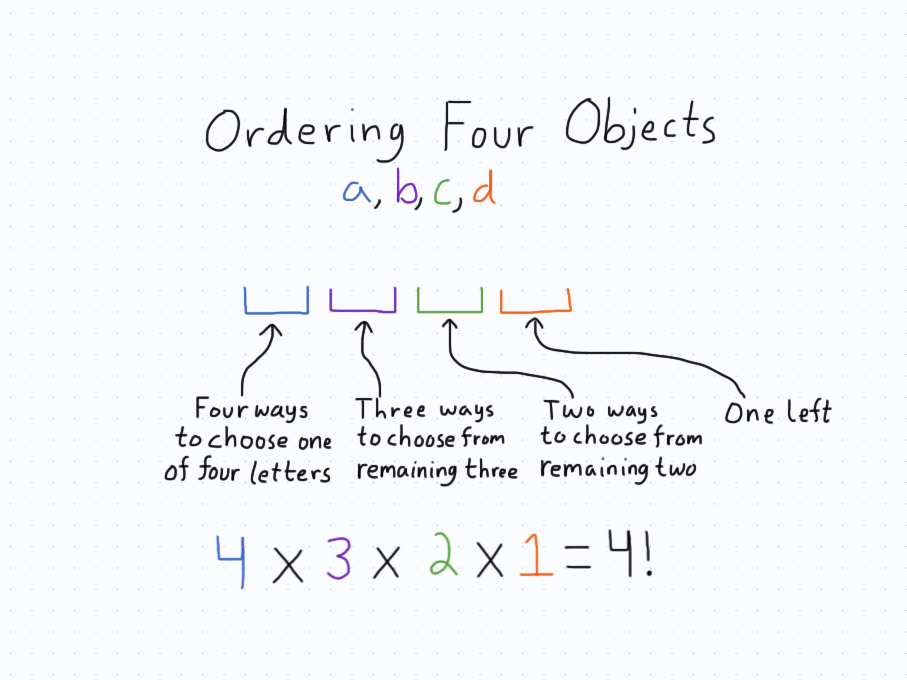 Ordering Four Objects
a, b, c, d
Four ways
to choose one
of four letters
Three ways
to choose from
remaining three
Two ways
to choose from
remaining two
One left
4 x 3 x 2 x 1 = 4!